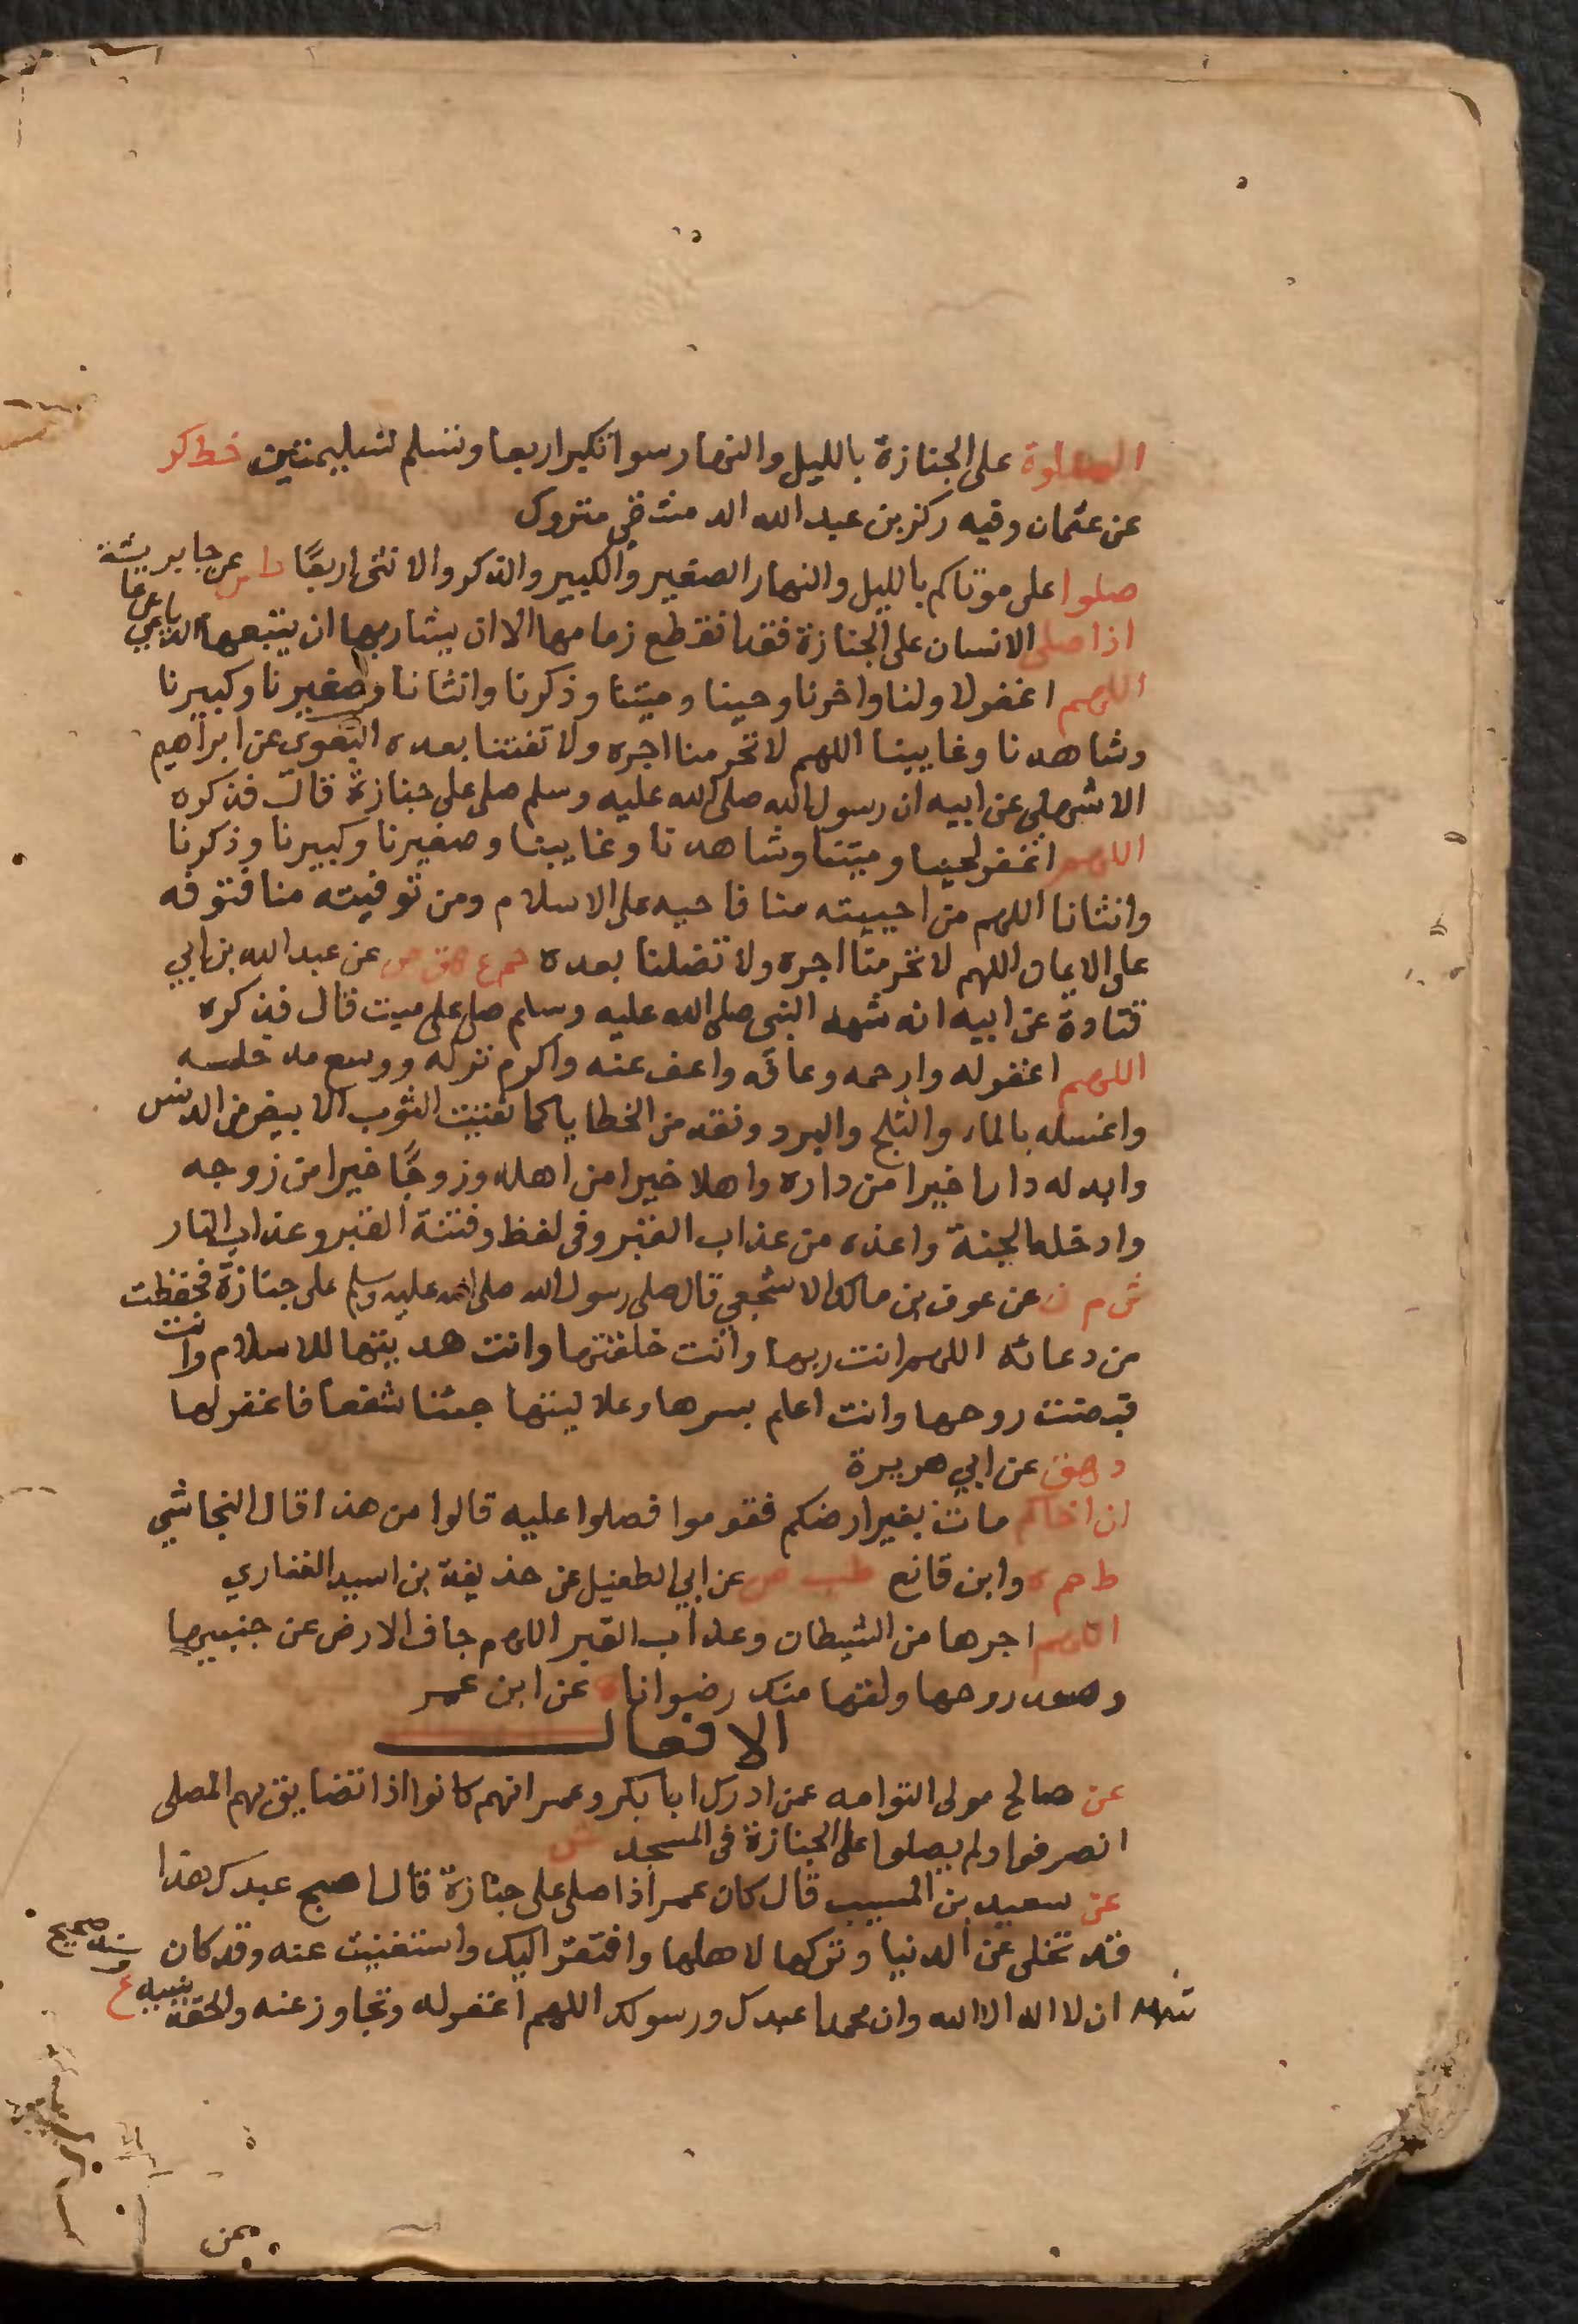 الصلوة على الجنازة بالليل والنهار سوا تكبر اربعا وتسلم تسليمتين خط كر
عن عثمان وفيه ركن بن عبد الله الدمشقى متروك
صلوا على موتاكم بالليل والنهار الصغير والكبير والذكر والانثى اربعًا عن جابر
اذا صلى الانسان على الجنازة فقد انقطع زمامها الا ان يشا ربها ان يتبعها الديلمي عن عايشة
اللهم اغفر لاولنا واخرنا وحينا وميتنا وذكرنا وانثانا وصغيرنا وكبيرنا
وشاهدنا وغايبنا اللهم لا تحرمنا اجره ولا تفتنا بعده البغوى عن ابراهيم
الاشهلي عن ابيه ان رسول الله صلى الله عليه وسلم صلى على جنازة قال فذكره
اللهم اغفر لحينا وميتنا وشاهدنا وغايبنا وصغيرنا وكبيرنا وذكرنا
وانثانا اللهم من احييته منا فاحيه على الاسلام ومن توفيته منا فتوفه
على الايمان اللهم لا تحرمنا اجره ولا تضلنا بعده حم ع هق ص عن عبد الله بن ابي
قتادة عن ابيه انه شهد النبى صلى الله عليه وسلم صلى على ميت قال فذكره
اللهم اغفر له وارحمه وعافه واعف عنه واكرم نزله ووسع مدخله
واغسله بالماء والثلج والبرد ونقه من الخطايا كما نقيت الثوب الابيض من الدنس
وابدله دارا خيرا من داره واهلا خيرا من اهله وزوجًا خيرا من زوجه
وادخله الجنة واعذه من عذاب القبر وفى لفظ وفتنة القبر وعذاب النار
ش م ن عن عوف بن مالك الاشجعي قال صلى رسول الله صلى الله عليه وسلم على جنازة فحفظت
من دعائه اللهم انت ربها وانت خلقتها وانت هديتها للاسلام وانت
قبضت روحها وانت اعلم بسرها وعلانيتها جئنا شفعا فاغفر لها
د هق عن ابي هريرة
ان اخاكم مات بغير ارضكم فقوموا فصلوا عليه قالوا من هذا قال النجاشي
ط حم ه وابن قانع طب ص عن ابي الطفيل عن حذيفة بن اسيد الغفاري
اللهم اجرها من الشيطان وعذاب القبر اللهم جاف الارض عن جنبيها
وصعد روحها ولقها منك رضوانا ه عن ابن عمر
الافعال
عن صالح مولى التوامه عمن ادرك ابا بكر وعمر انهم كانوا اذا تضايق بهم المصلى
انصرفوا ولم يصلوا على الجنازة فى المسجد ش
عن سعيد بن المسيب قال كان عمر اذا صلى على جنازة قال اصبح عبدك هذا
قد تخلى عن الدنيا وتركها لاهلها وافتقر اليك واستغنيت عنه وقد كان
يشهد ان لا اله الا الله وان محمدا عبدك ورسولك اللهم اغفر له وتجاوز عنه والحقه بنبيه ع
وسنده صحيح
عن